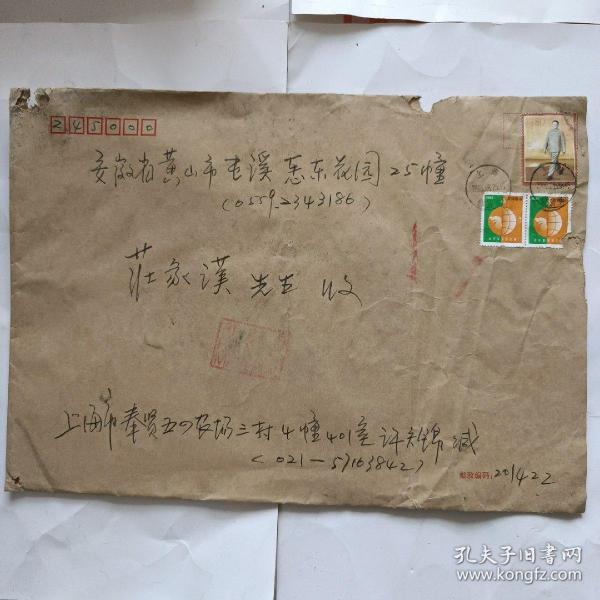 245000
安徽省黄山市屯溪惠东花园25幢
(0559-2343186)
莊家漢 先生 收
上海市奉贤五四农场三村4幢401室 许夫锦 缄
(021-57163842)
邮政编码：201422
孔夫子旧书网
www.kongfz.com